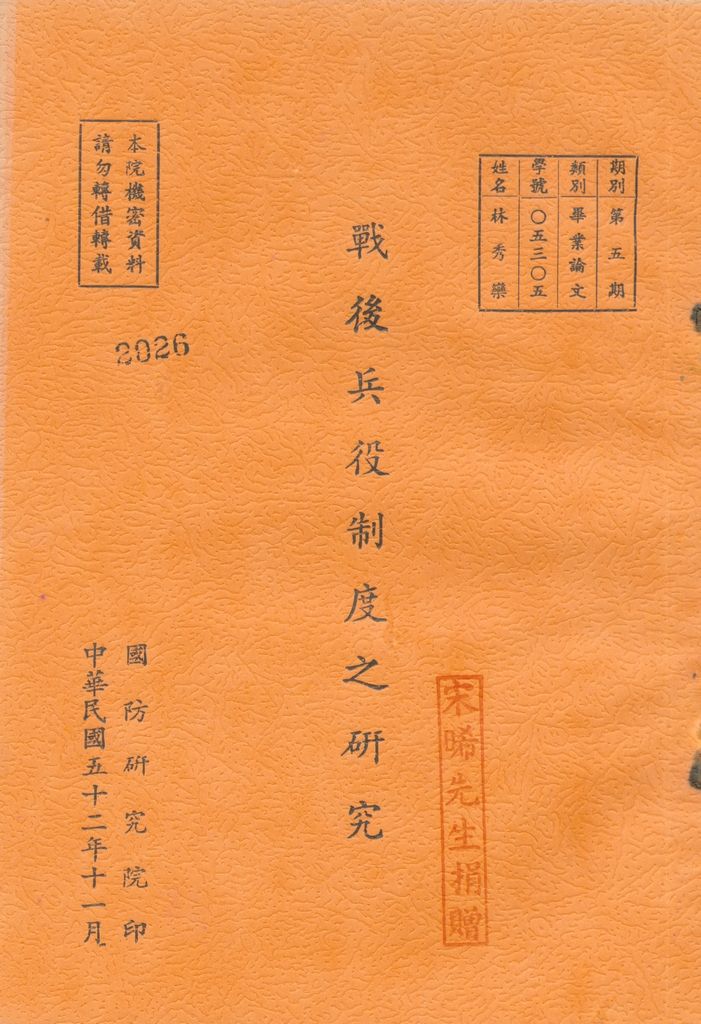 期別 第五期
類別 畢業論文
學號 〇五三〇五
姓名 林秀欒
戰後兵役制度之研究
宋晞先生捐贈
本院機密資料
請勿轉借轉載
2026
國防研究院印
中華民國五十二年十一月